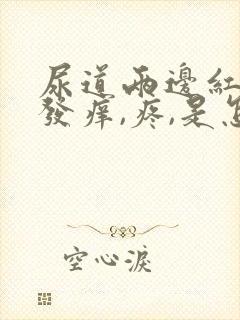 尿道兩邊紅
發癢,疼,是怎
空心淚